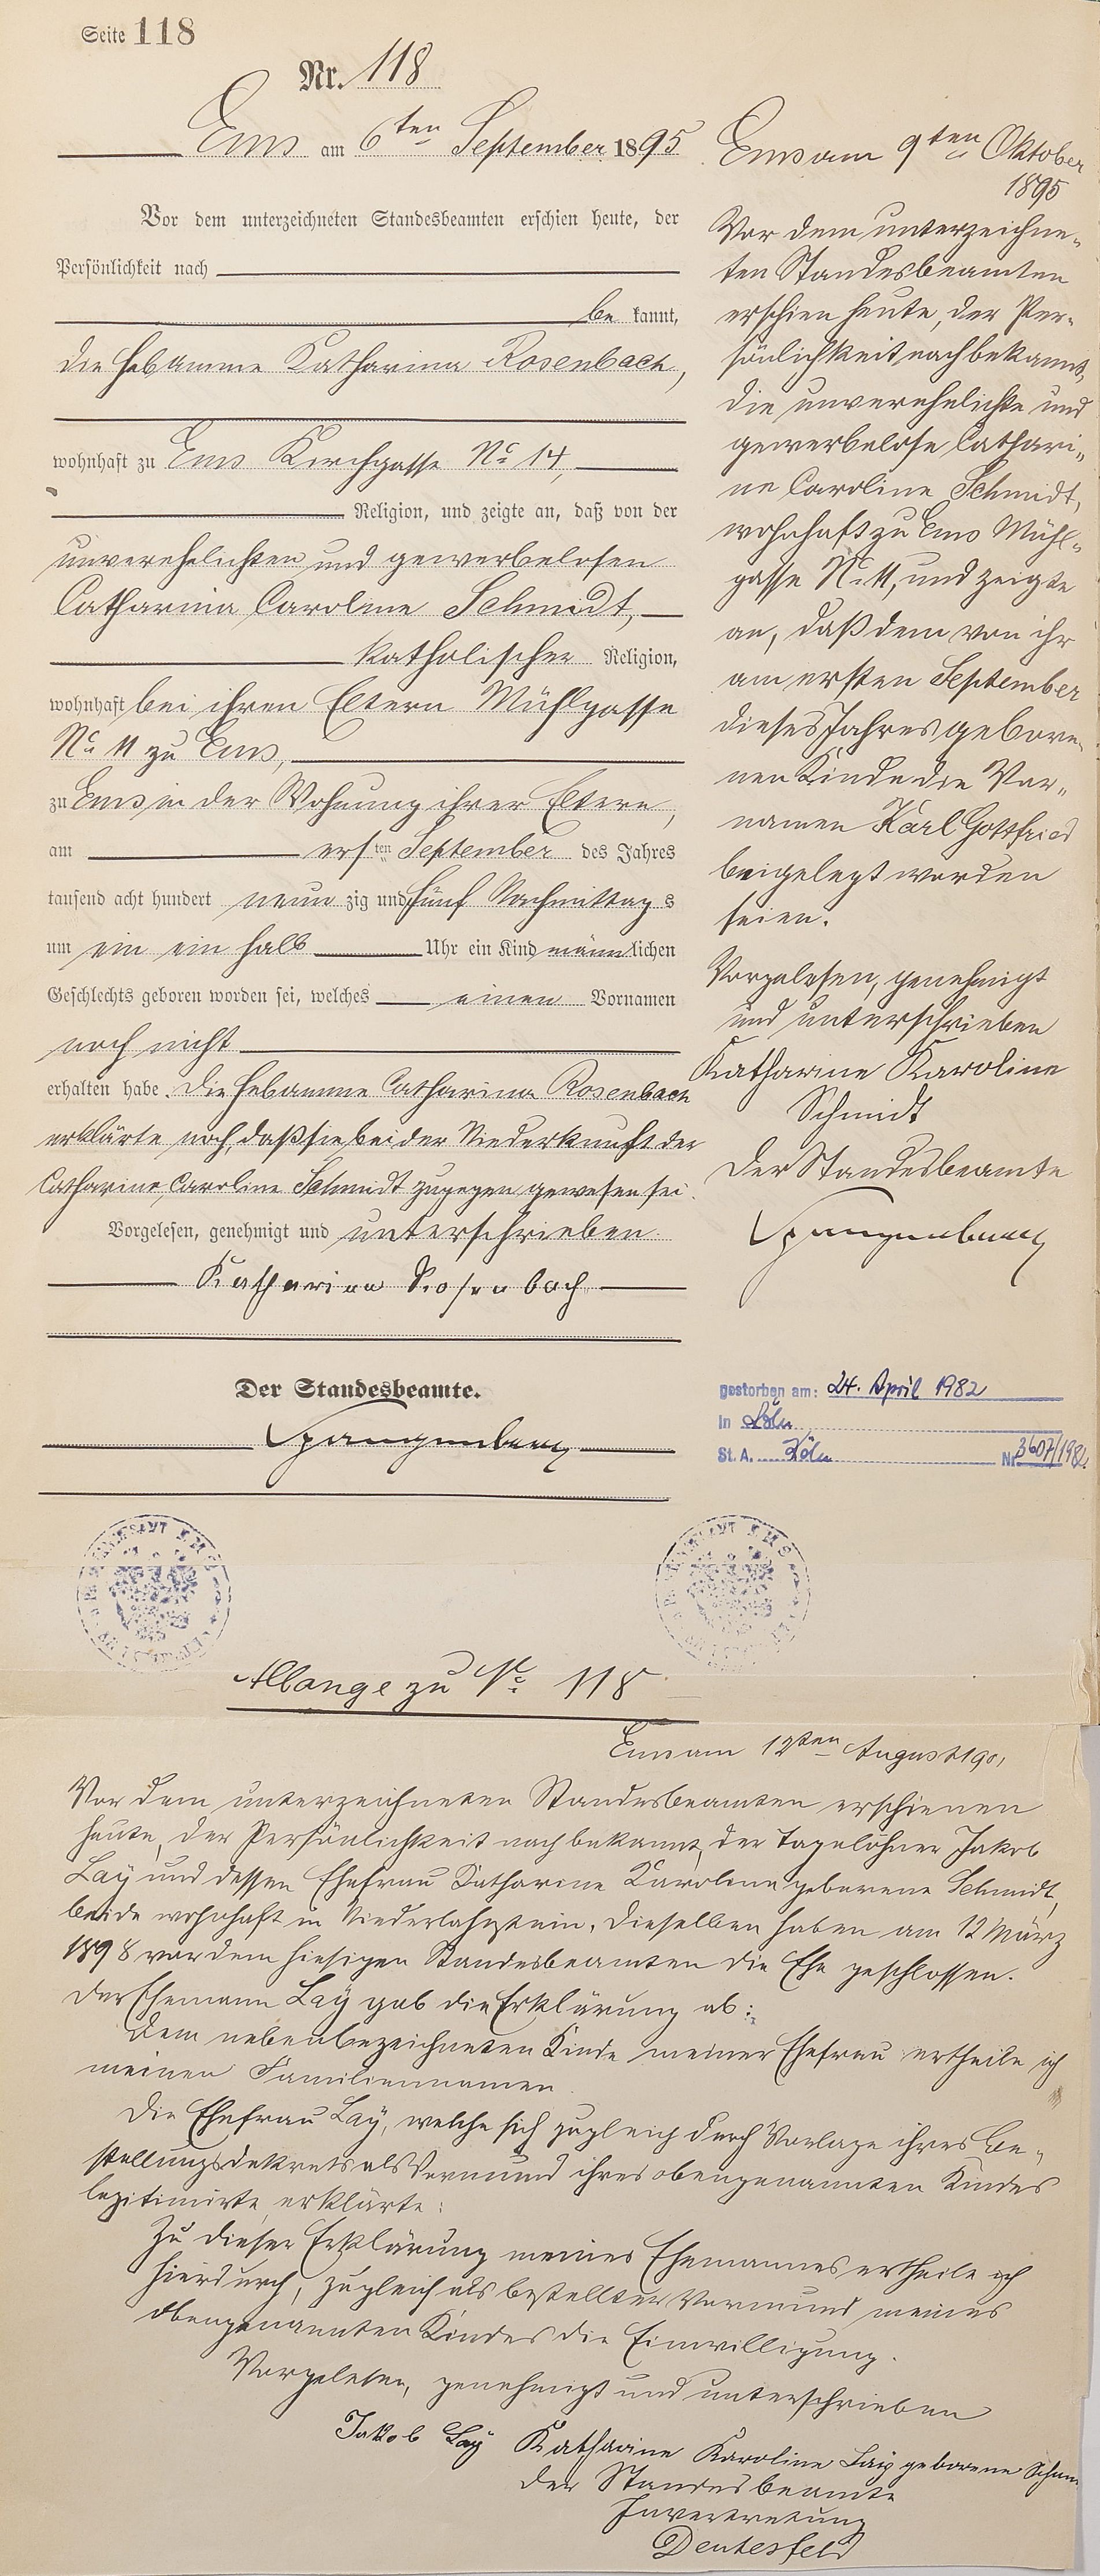 Seite 118
Nr. 118
Ems am 6ten September 1895
Vor dem unterzeichneten Standesbeamten erschien heute, der
Persönlichkeit nach
be kannt,
die Hebamme Katharina Rosenbach,
wohnhaft zu Ems Kirchgasse No 14,
Religion, und zeigte an, daß von der
unverehelichten und gewerbelosen
Catharina Caroline Schmidt,
katholischer Religion,
wohnhaft bei ihren Eltern Mühlgasse
No 11 zu Ems,
zu Ems in der Wohnung ihrer Eltern,
am ersten September des Jahres
tausend acht hundert neun zig und fünf Nachmittag s
um ein ein halb Uhr ein Kind männlichen
Geschlechts geboren worden sei, welches einen Vornamen
noch nicht
erhalten habe. Die Hebamme Catharina Rosenbach
erklärte noch, daß sie bei der Niederkunft der
Catharine Caroline Schmidt zugegen gewesen sei.
Vorgelesen, genehmigt und unterschrieben
Katharina Rosenbach
Der Standesbeamte.
Spangenberg
Ems am 9ten Oktober
1895
Vor dem unterzeichne-
ten Standesbeamten
erschien heute, der Per-
sönlichkeit nach bekannt,
die unverehelichte und
gewerbelose Cathari-
ne Caroline Schmidt,
wohnhaft zu Ems Mühl-
gasse No 11, und zeigte
an, daß dem von ihr
am ersten September
dieses Jahres gebore-
nen Kinde die Vor-
namen Karl Gottfried
beigelegt worden
seien.
Vorgelesen, genehmigt
und unterschrieben
Katharine Karoline
Schmidt
Der Standesbeamte
Spangenberg
gestorben am: 24. April 1982
in Köln
St. A. Köln Nr. 3607/1982
Anlage zu No 118
Ems am 12ten August 1901
Vor dem unterzeichneten Standesbeamten erschienen
heute, der Persönlichkeit nach bekannt, der Tagelöhner Jakob
Laÿ und dessen Ehefrau Katharine Karoline geborene Schmidt,
beide wohnhaft in Niederlahnstein. Dieselben haben am 12 März
1898 vor dem hiesigen Standesbeamten die Ehe geschlossen.
Der Ehemann Laÿ gab die Erklärung ab:
Dem nebenbezeichneten Kinde meiner Ehefrau ertheile ich
meinen Familiennamen.
Die Ehefrau Laÿ, welche sich zugleich durch Vorlage ihres Be-
stellungsdekrets als Vormund ihres obengenannten Kindes
legitimirte, erklärte:
Zu dieser Erklärung meines Ehemannes ertheile ich
hierdurch, zugleich als bestellter Vormund meines
obengenannten Kindes die Einwilligung.
Vorgelesen, genehmigt und unterschrieben
Jakob Laÿ Katharine Karoline Laÿ geborene Schm
Der Standesbeamte
In Vertretung